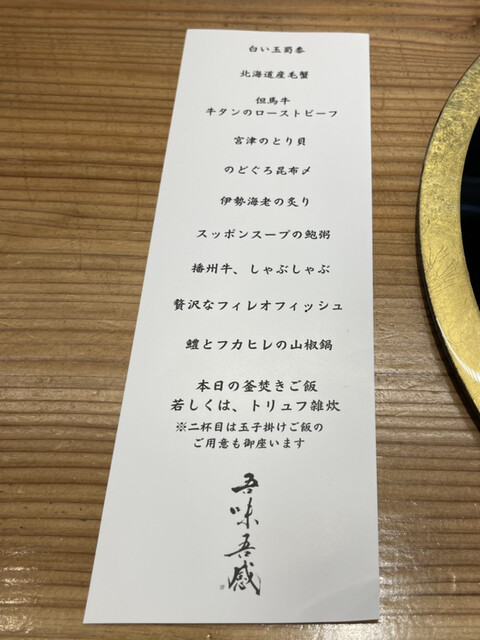 白い玉蜀黍
北海道産毛蟹
但馬牛
牛タンのローストビーフ
宮津のとり貝
のどぐろ昆布〆
伊勢海老の炙り
スッポンスープの鮑粥
播州牛、しゃぶしゃぶ
贅沢なフィレオフィッシュ
鱧とフカヒレの山椒鍋
本日の釜焚きご飯
若しくは、トリュフ雑炊
※二杯目は玉子掛けご飯の
ご用意も御座います
吾味吾感